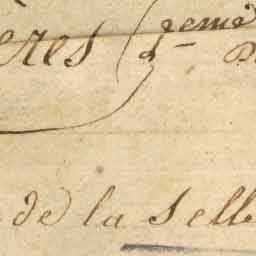 ères (2eme
de la Selle